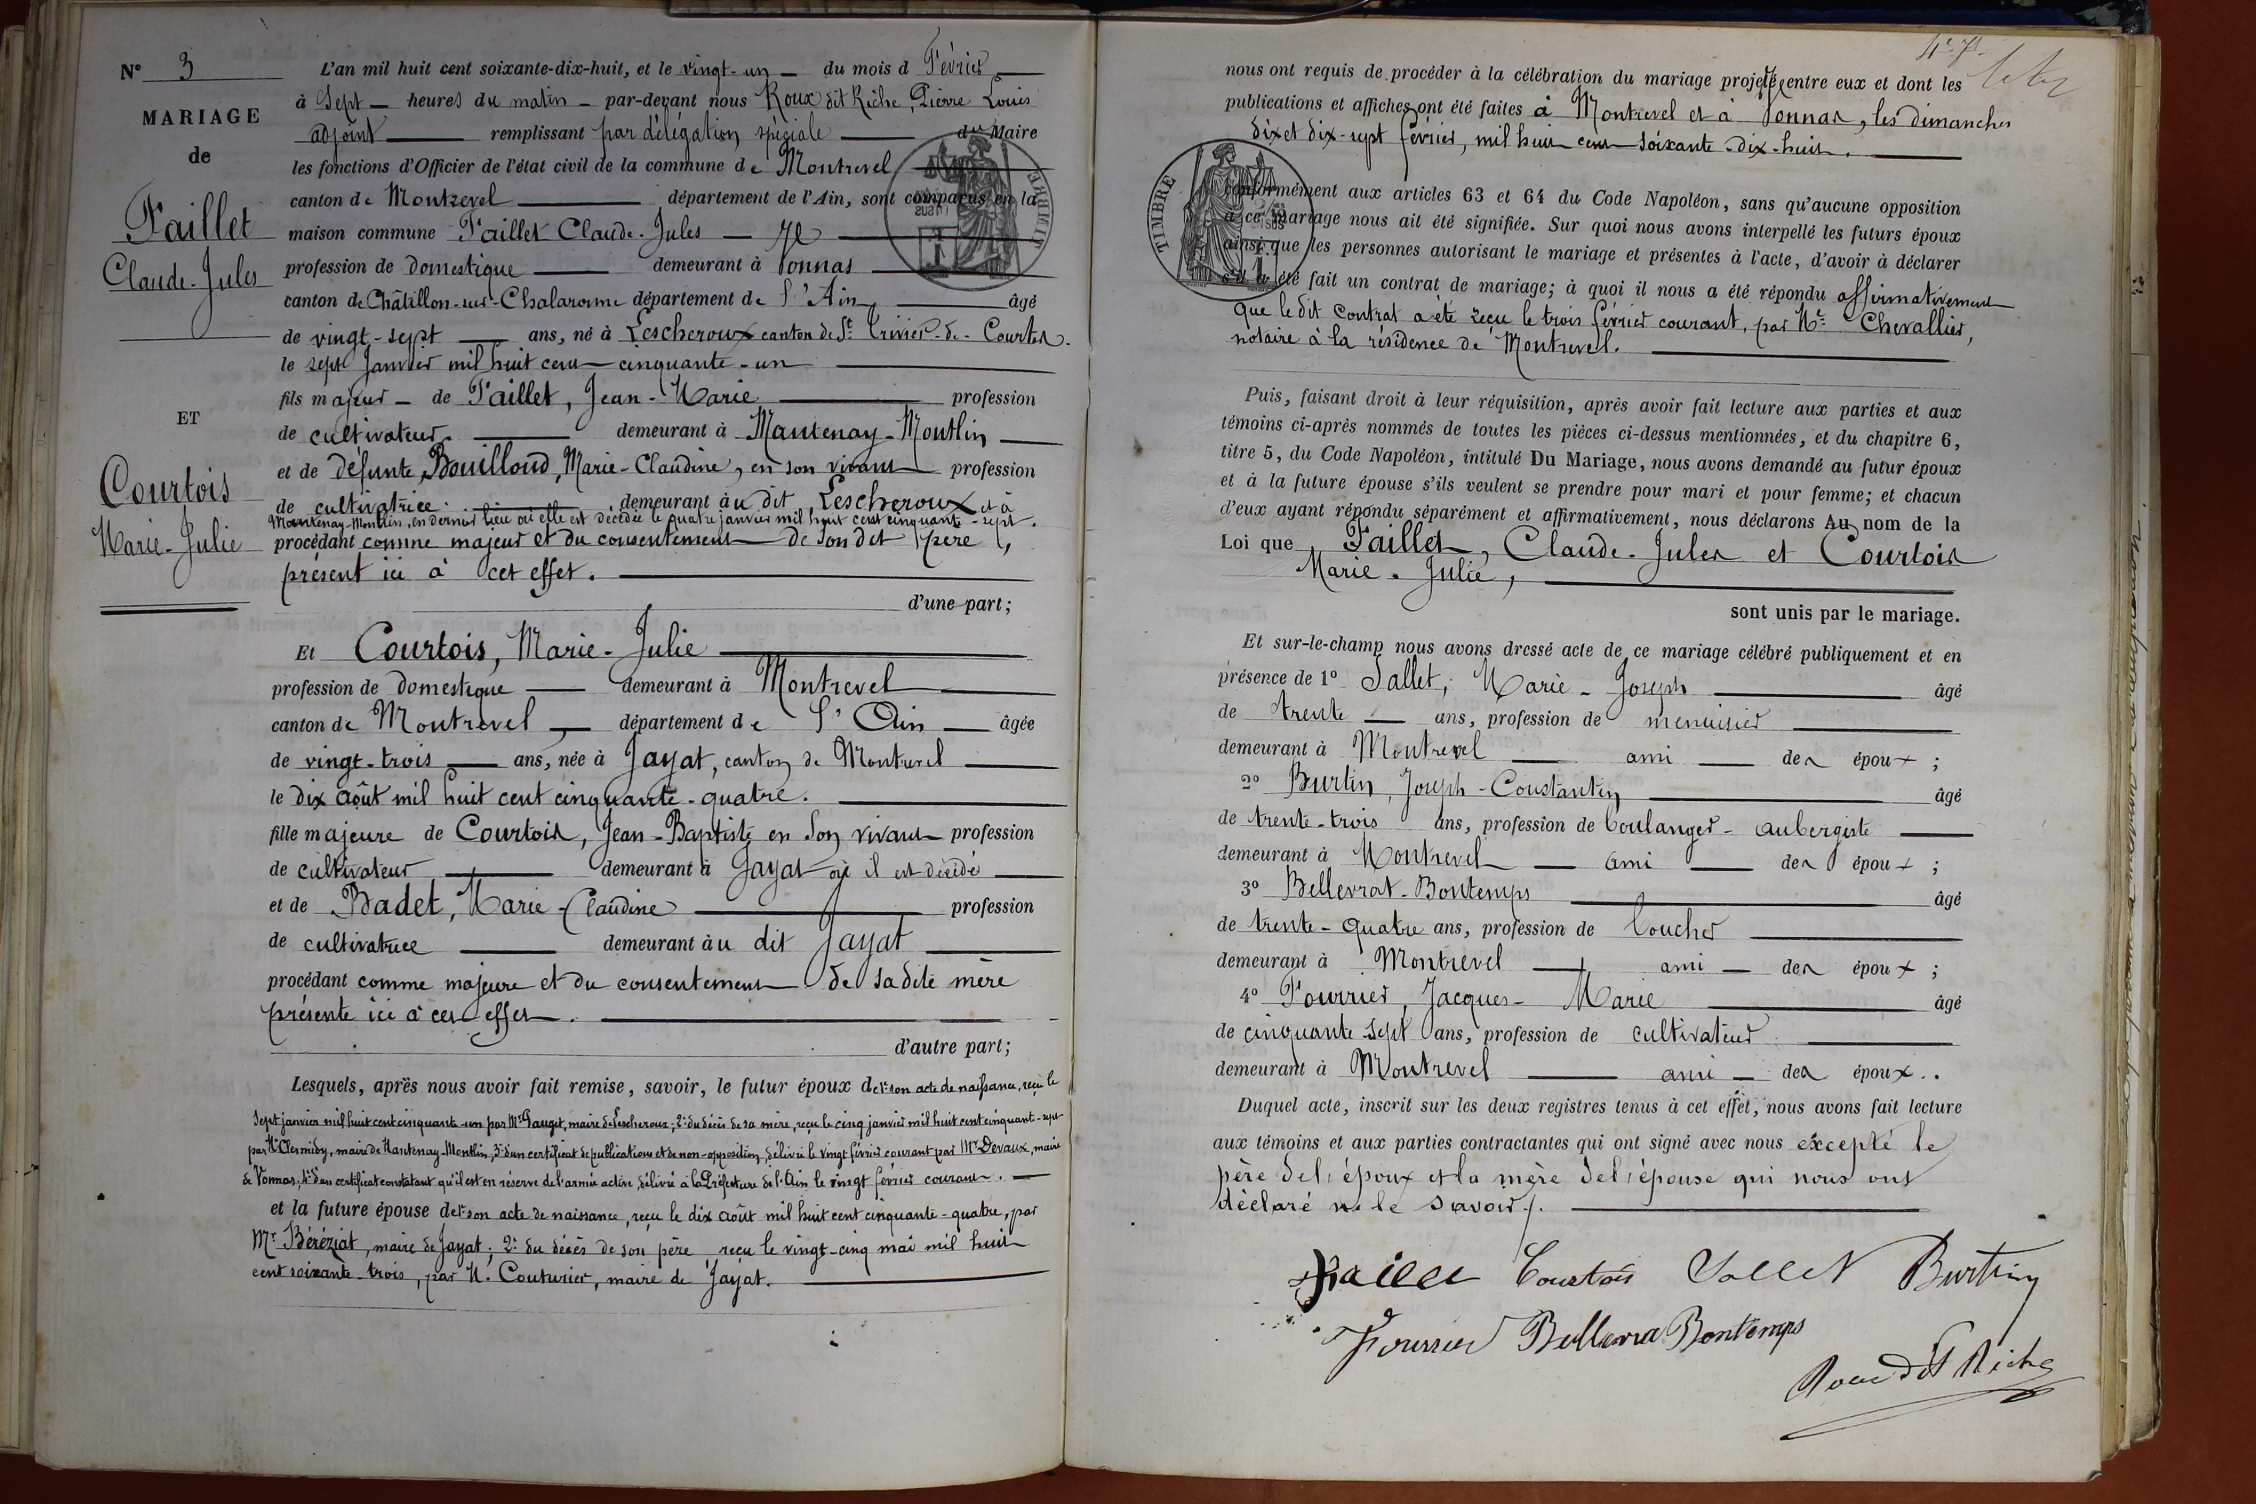 N° 3
MARIAGE
de
Faillet
Claude-Jules
ET
Courtois
Marie-Julie
L'an mil huit cent soixante-dix-huit, et le vingt-un du mois d Février
à Sept heures du matin par-devant nous Roux dit Riche, Pierre Louis
adjoint remplissant par délégation spéciale du Maire
les fonctions d'Officier de l'état civil de la commune de Montrevel
canton de Montrevel département de l'Ain, sont comparus en la
maison commune Faillet Claude-Jules
profession de domestique demeurant à Vonnas
canton de Châtillon-sur-Chalaronne département de l'Ain, âgé
de vingt-sept ans, né à Lescheroux canton de St Trivier-de-Courtes.
le sept Janvier mil huit cent cinquante-un
fils majeur de Faillet, Jean-Marie profession
de cultivateur demeurant à Mantenay-Montlin
et de défunte Bouilloud, Marie-Claudine, en son vivant profession
de cultivatrice demeurant au dit Lescheroux et à
Mantenay-Montlin, en dernier lieu où elle est décédée le quatre janvier mil huit cent cinquante-sept.
procédant comme majeur et du consentement de son dit père,
présent ici à cet effet.
d'une part;
Et Courtois, Marie-Julie
profession de domestique demeurant à Montrevel
canton de Montrevel département de l'Ain âgée
de vingt-trois ans, née à Jayat, canton de Montrevel
le dix août mil huit cent cinquante-quatre.
fille majeure de Courtois, Jean-Baptiste en son vivant profession
de cultivateur demeurant à Jayat où il est décédé
et de Badet, Marie-Claudine profession
de cultivatrice demeurant au dit Jayat
procédant comme majeure et du consentement de sa dite mère
présente ici à cet effet.
d'autre part;
Lesquels, après nous avoir fait remise, savoir, le futur époux de 1° son acte de naissance, reçu le
sept janvier mil huit cent cinquante-un par Mr Pauget, maire de Lescheroux; 2° du décès de sa mère, reçu le cinq janvier mil huit cent cinquante-sept
par Mr Clermidy, maire de Mantenay-Montlin, 3° d'un certificat de publications et de non-opposition, délivré le vingt février courant par Mr Devaux, maire
de Vonnas, 4° d'un certificat constatant qu'il est en réserve de l'armée active, délivré à la Préfecture de l'Ain le vingt février courant.
et la future épouse de 1° son acte de naissance, reçu le dix août mil huit cent cinquante-quatre, par
Mr Béréziat, maire de Jayat; 2° du décès de son père reçu le vingt-cinq mai mil huit
cent soixante-trois, par M. Couturier, maire de Jayat.
nous ont requis de procéder à la célébration du mariage projeté entre eux et dont les
publications et affiches ont été faites à Montrevel et à Vonnas, les dimanches
dix et dix-sept février, mil huit cent soixante-dix-huit.
TIMBRE
conformément aux articles 63 et 64 du Code Napoléon, sans qu'aucune opposition
à ce mariage nous ait été signifiée. Sur quoi nous avons interpellé les futurs époux
ainsi que les personnes autorisant le mariage et présentes à l'acte, d'avoir à déclarer
s'il a été fait un contrat de mariage; à quoi il nous a été répondu affirmativement
que le dit contrat a été reçu le trois février courant, par Me Chevallier,
notaire à la résidence de Montrevel.
Puis, faisant droit à leur réquisition, après avoir fait lecture aux parties et aux
témoins ci-après nommés de toutes les pièces ci-dessus mentionnées, et du chapitre 6,
titre 5, du Code Napoléon, intitulé Du Mariage, nous avons demandé au futur époux
et à la future épouse s'ils veulent se prendre pour mari et pour femme; et chacun
d'eux ayant répondu séparément et affirmativement, nous déclarons Au nom de la
Loi que Faillet, Claude-Jules et Courtois
Marie-Julie,
sont unis par le mariage.
Et sur-le-champ nous avons dressé acte de ce mariage célébré publiquement et en
présence de 1° Sallet, Marie-Joseph âgé
de trente ans, profession de menuisier
demeurant à Montrevel ami des époux;
2° Burtin, Joseph-Constantin âgé
de trente-trois ans, profession de boulanger-aubergiste
demeurant à Montrevel ami des époux;
3° Bellevrat-Bontemps âgé
de trente-quatre ans, profession de boucher
demeurant à Montrevel ami des époux;
4° Fourrier, Jacques-Marie âgé
de cinquante-sept ans, profession de cultivateur
demeurant à Montrevel ami des époux.
Duquel acte, inscrit sur les deux registres tenus à cet effet, nous avons fait lecture
aux témoins et aux parties contractantes qui ont signé avec nous excepté le
père de l'époux et la mère de l'épouse qui nous ont
déclaré ne le savoir.
Faillet Courtois Sallet Burtin
Fourrier Bellevra Bontemps
Roux dit Riche